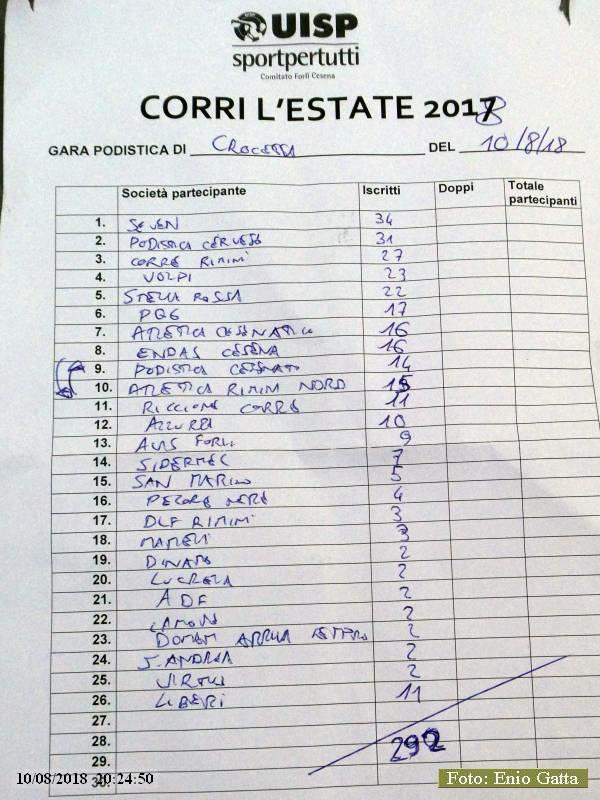 UISP
sportpertutti
Comitato Forlì Cesena
CORRI L'ESTATE 2018
GARA PODISTICA DI CROCETTA DEL 10/8/18
Società partecipante Iscritti Doppi Totale partecipanti
1. SEVEN 34
2. PODISTICA CERVESE 31
3. CORRE RIMINI 27
4. VOLPI 23
5. STELLA ROSSA 22
6. PG6 17
7. ATLETICA CESENATICO 16
8. ENDAS CESENA 16
9. PODISTICA CESENATE 14
10. ATLETICA RIMINI NORD 15
11. RICCIONE CORRE 11
12. AZZURRA 10
13. AVIS FORLI 9
14. SIDERMEC 7
15. SAN MARINO 5
16. PECORE NERE 4
17. DLF RIMINI 3
18. MAMELI 3
19. 2
20. 2
21. 2
22. LAMONE 2
23. DOMANI ARRIVA 2
24. S. ANDREA 2
25. VIRTUS 2
26. LIBERI 11
27.
28. 292
29.
30.
10/08/2018 20:24:50
Foto: Enio Gatta